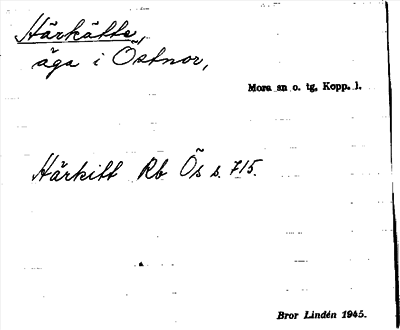 Härkätte,
äga i Östnor,
Mora sn o. tg, Kopp. l.
Härkitt Rb Ös s. 715.
Bror Lindén 1945.